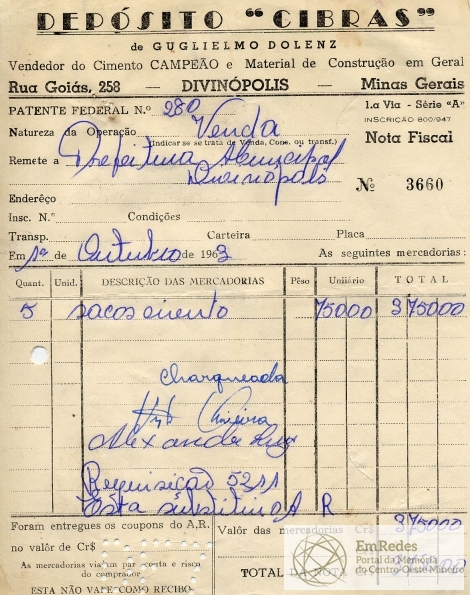 DEPÓSITO "CIBRAS"
de GUGLIELMO DOLENZ
Vendedor do Cimento CAMPEÃO e Material de Construção em Geral
Rua Goiás, 258 — DIVINÓPOLIS — Minas Gerais
PATENTE FEDERAL N.º 280
1.a Via - Série "A"
INSCRIÇÃO 800/947
Natureza da Operação Venda
(Indicar se se trata de Venda, Cons. ou transf.)
Nota Fiscal
Remete a Prefeitura Municipal
Divinópolis
Nº 3660
Enderêço
Insc. N.º Condições
Transp. Carteira Placa
Em 1º de Outubro de 1963 As seguintes mercadorias:
Quant. Unid. DESCRIÇÃO DAS MERCADORIAS Pêso Unitário TOTAL
5 sacos cimento 75000 375000
Charqueada
Oliveira
Alexandre
Requisição 5211
Esta substitui A R
Foram entregues os coupons do A.R. Valor das mercadorias Cr$ 375000
no valôr de Cr$
As mercadorias viajam por conta e risco
do comprador
TOTAL DA NOTA
ESTA NÃO VALE COMO RECIBO
EmRedes
Portal da Memória
do Centro-Oeste Mineiro